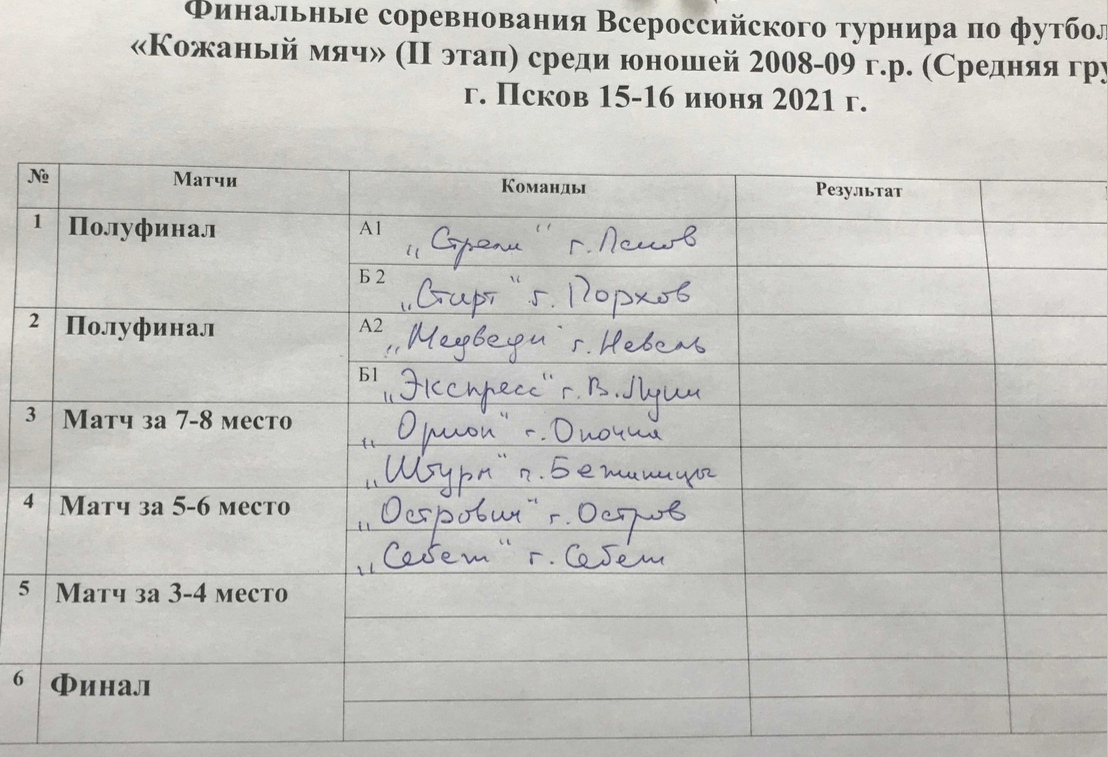 Финальные соревнования Всероссийского турнира по футбол
«Кожаный мяч» (II этап) среди юношей 2008-09 г.р. (Средняя гру
г. Псков 15-16 июня 2021 г.
№ Матчи Команды Результат
1 Полуфинал А1 „Стрела“ г. Псков
Б 2 „Старт“ г. Порхов
2 Полуфинал А2 „Медведи“ г. Невель
Б1 „Экспресс“ г. В. Луки
3 Матч за 7-8 место „Орион“ г. Опочка
„Штурм“ г. Бежаницы
4 Матч за 5-6 место „Островия“ г. Остров
„Себеж“ г. Себеж
5 Матч за 3-4 место
6 Финал